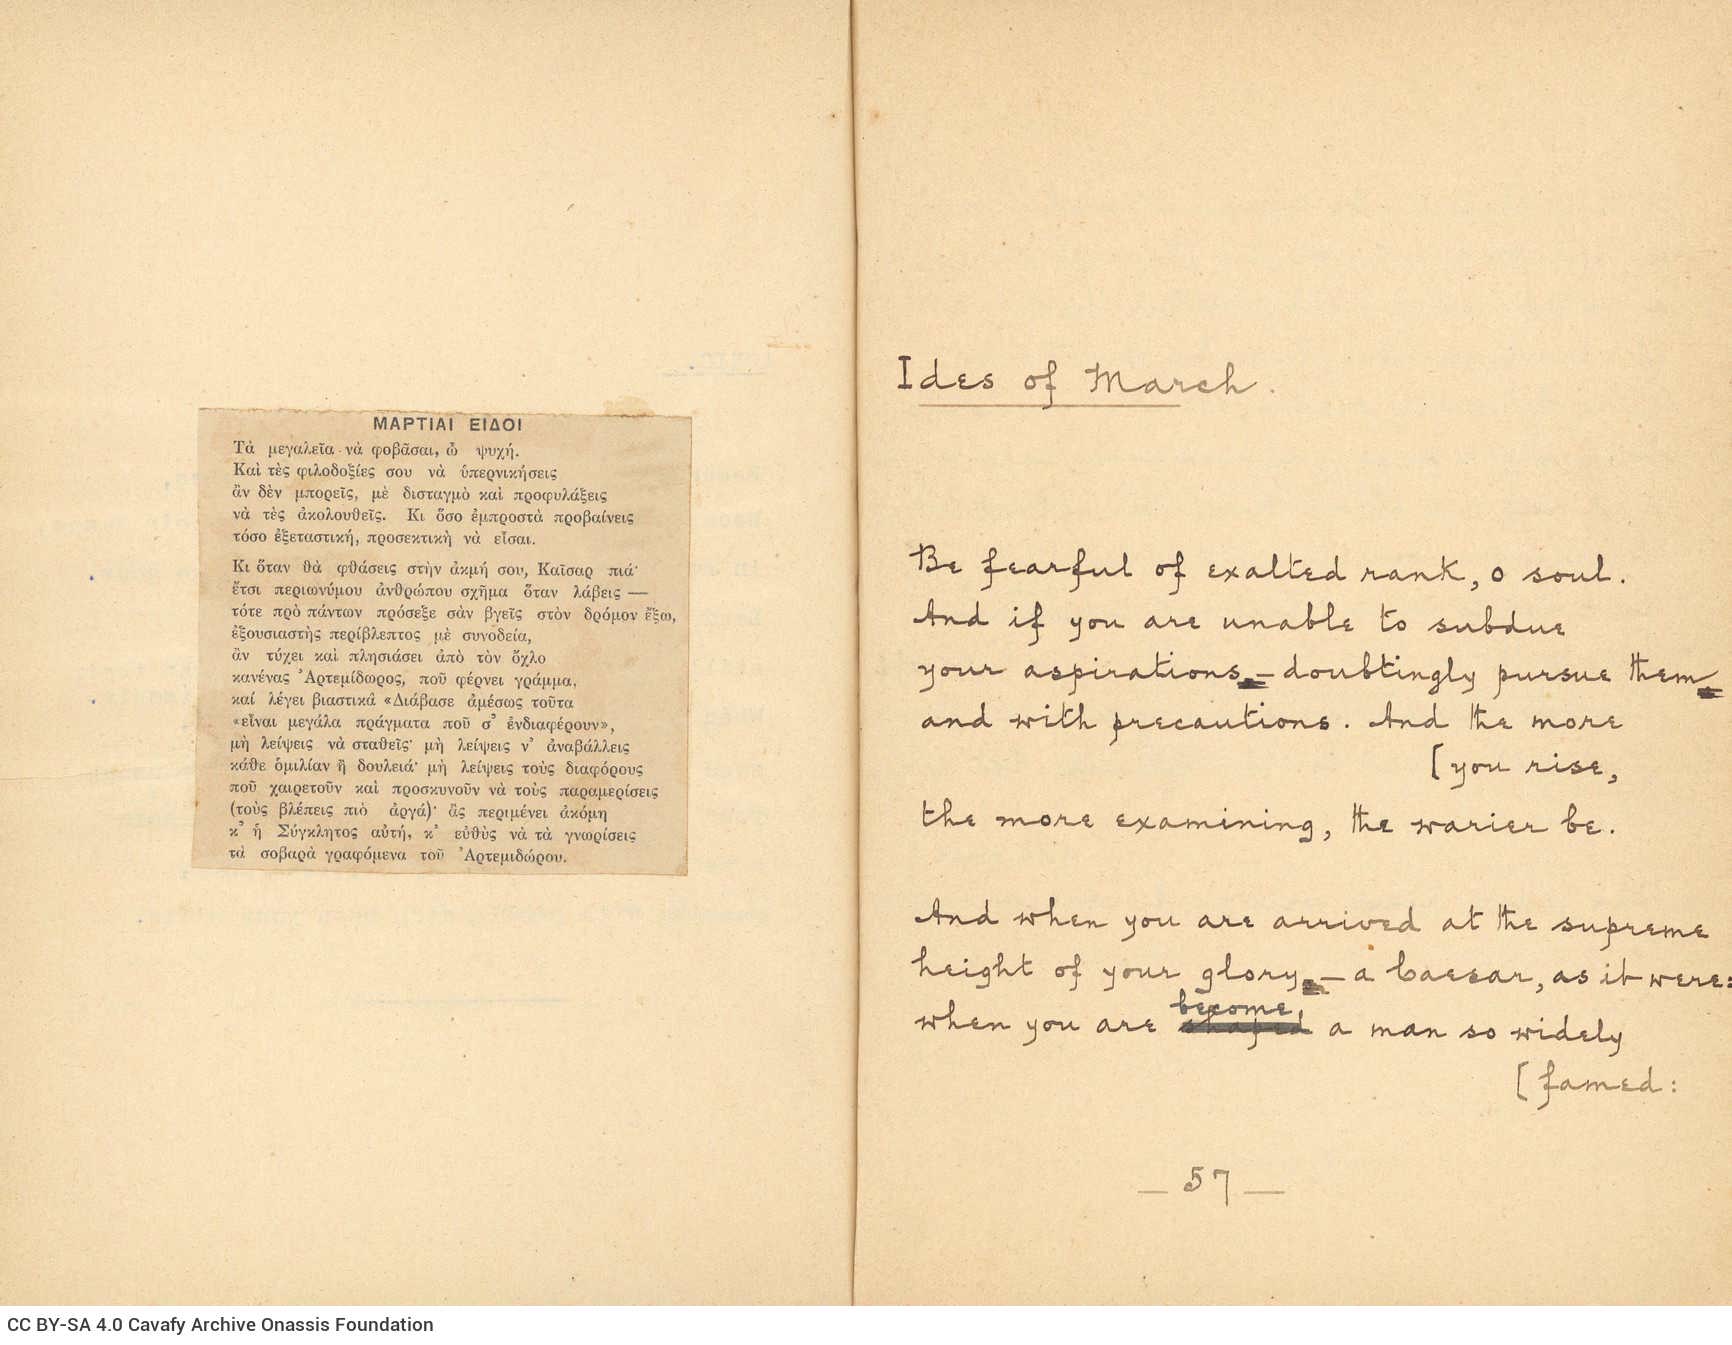 ΜΑΡΤΙΑΙ ΕΙΔΟΙ
Τὰ μεγαλεῖα νὰ φοβᾶσαι, ὦ ψυχή.
Καὶ τὲς φιλοδοξίες σου νὰ ὑπερνικήσεις
ἂν δὲν μπορεῖς, μὲ δισταγμὸ καὶ προφυλάξεις
νὰ τὲς ἀκολουθεῖς. Κι ὅσο ἐμπροστὰ προβαίνεις
τόσο ἐξεταστική, προσεκτικὴ νὰ εἶσαι.
Κι ὅταν θὰ φθάσεις στὴν ἀκμή σου, Καῖσαρ πιά·
ἔτσι περιωνύμου ἀνθρώπου σχῆμα ὅταν λάβεις —
τότε πρὸ πάντων πρόσεξε σὰν βγεῖς στὸν δρόμον ἔξω,
ἐξουσιαστὴς περίβλεπτος μὲ συνοδεία,
ἂν τύχει καὶ πλησιάσει ἀπὸ τὸν ὄχλο
κανένας Ἀρτεμίδωρος, ποῦ φέρνει γράμμα,
καί λέγει βιαστικὰ «Διάβασε ἀμέσως τοῦτα
«εἶναι μεγάλα πράγματα ποῦ σ' ἐνδιαφέρουν»,
μὴ λείψεις νὰ σταθεῖς· μὴ λείψεις ν' ἀναβάλλεις
κάθε ὁμιλίαν ἢ δουλειά· μὴ λείψεις τοὺς διαφόρους
ποῦ χαιρετοῦν καὶ προσκυνοῦν νὰ τοὺς παραμερίσεις
(τοὺς βλέπεις πιὸ ἀργά)· ἂς περιμένει ἀκόμη
κ' ἡ Σύγκλητος αὐτή, κ' εὐθὺς νὰ τὰ γνωρίσεις
τὰ σοβαρὰ γραφόμενα τοῦ Ἀρτεμιδώρου.
Ides of March.
Be fearful of exalted rank, o soul.
And if you are unable to subdue
your aspirations — doubtingly pursue them
and with precautions. And the more
[you rise,
the more examining, the warier be.
And when you are arrived at the supreme
height of your glory — a Caesar, as it were:
become,
when you are shaped a man so widely
[famed:
— 57 —
CC BY-SA 4.0 Cavafy Archive Onassis Foundation